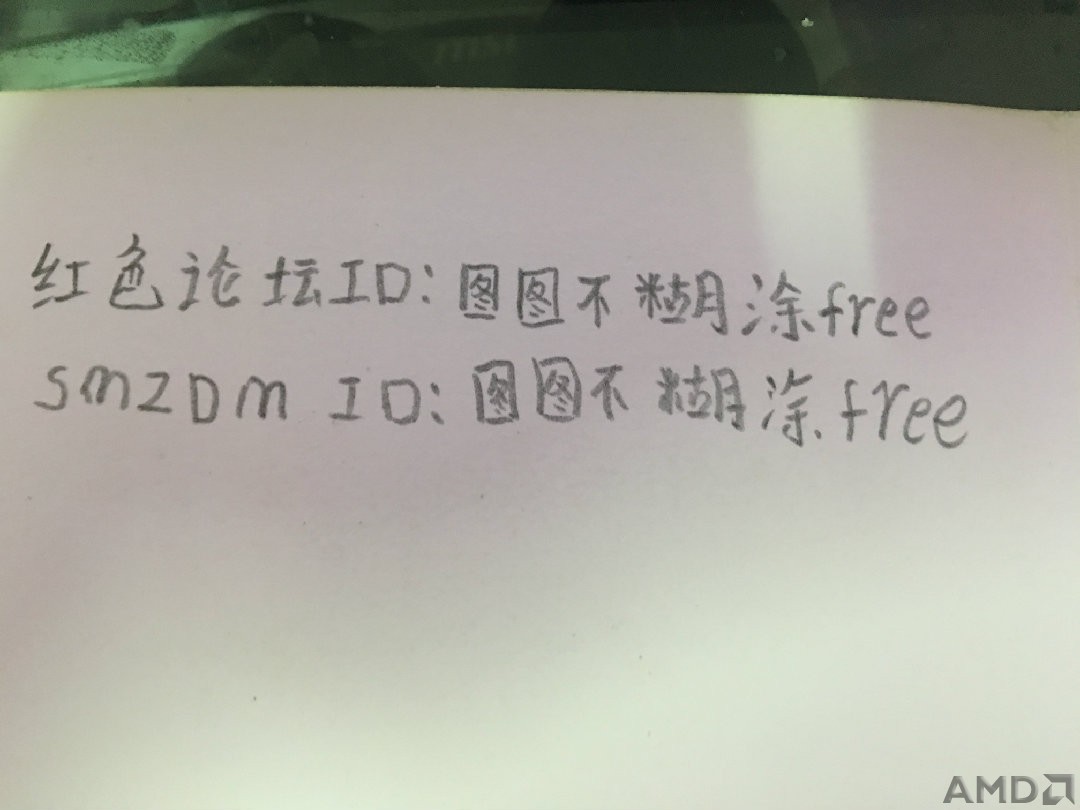 红色论坛ID:图图不糊涂free
SMZDM ID:图图不糊涂.free
AMD